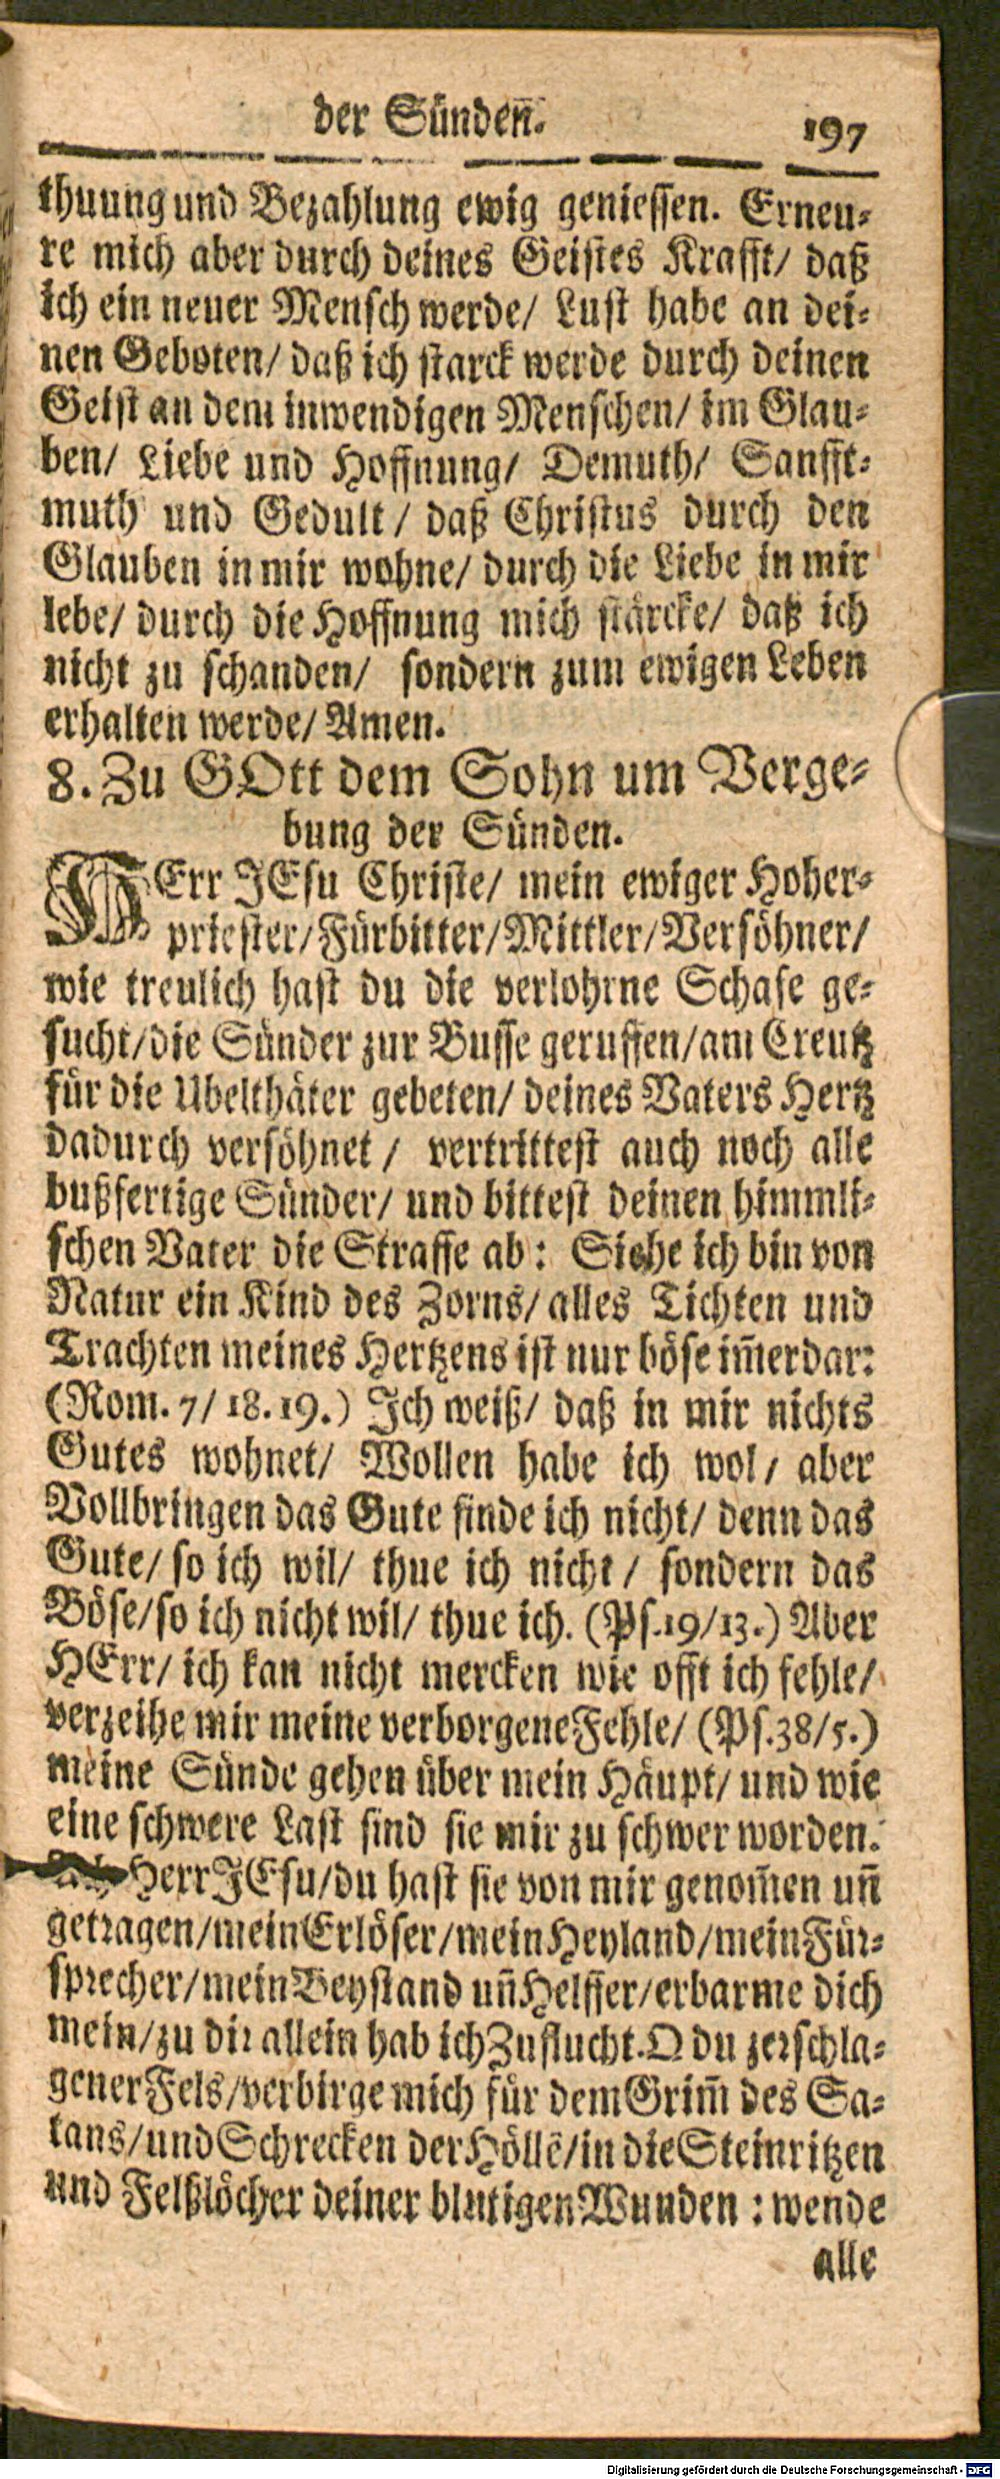 der Sündenn̄. 197
thuung und Bezahlung ewig geniessen. Erneu-
re mich aber durch deines Geistes Krafft/ daß
ich ein neuer Mensch werde/ Lust habe an dei-
nen Geboten/ daß ich starck werde durch deinen
Geist an dem inwendigen Menschen/ im Glau-
ben/ Liebe und Hoffnung/ Demuth/ Sanfft-
muth und Gedult/ daß Christus durch den
Glauben in mir wohne/ durch die Liebe in mir
lebe/ durch die Hoffnung mich stärcke/ daß ich
nicht zu schanden/ sondern zum ewigen Leben
erhalten werde/ Amen.
8. Zu GOtt dem Sohn um Verge-
bung der Sünden.
HErr JEsu Christe/ mein ewiger Hoher-
priester/ Fürbitter/ Mittler/ Versöhner/
wie treulich hast du die verlohrne Schafe ge-
sucht/ die Sünder zur Busse geruffen/ am Creutz
für die Ubelthäter gebeten/ deines Vaters Hertz
dadurch versöhnet/ vertrittest auch noch alle
bußfertige Sünder/ und bittest deinen himmli-
schen Vater die Straffe ab: Siehe ich bin von
Natur ein Kind des Zorns/ alles Tichten und
Trachten meines Hertzens ist nur böse im̄erdar:
(Rom. 7/ 18. 19.) Ich weiß/ daß in mir nichts
Gutes wohnet/ Wollen habe ich wol/ aber
Vollbringen das Gute finde ich nicht/ denn das
Gute/ so ich wil/ thue ich nicht/ sondern das
Böse/ so ich nicht wil/ thue ich. (Ps. 19/13.) Aber
HErr/ ich kan nicht mercken wie offt ich fehle/
verzeihe mir meine verborgene Fehle/ (Ps. 38/5.)
meine Sünde gehen über mein Häupt/ und wie
eine schwere Last sind sie mir zu schwer worden.
Herr JEsu/ du hast sie von mir genom̄en un̄
getragen/ mein Erlöser/ mein Heyland/ mein Für-
sprecher/ mein Beystand un̄ Helffer/ erbarme dich
mein/ zu dir allein hab ich Zuflucht. O du zerschla-
gener Fels/ verbirge mich für dem Grim̄ des Sa-
tans/ und Schrecken der Höllē/ in die Steinritzen
und Felßlöcher deiner blutigen Wunden: wende
alle
Digitalisierung gefördert durch die Deutsche Forschungsgemeinschaft - DFG